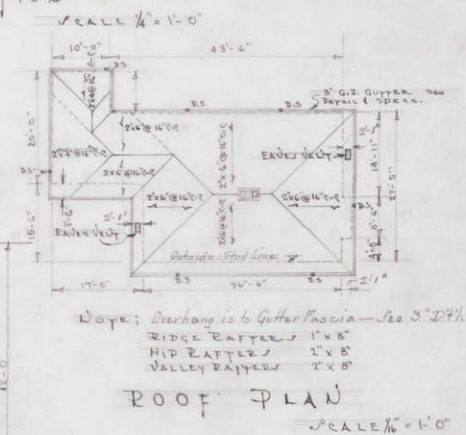 SCALE ¼" = 1'-0"
10'-0"
43'-6"
D.S
D.S.
D.S.
3" G.I. GUTTER SEE
DETAIL & SPECS.
2"x4"@16"C-C
20'-0"
2"x6"@16"C-C
2"x6"@16"C-C
EAVES VENT
14'-11"
27'-5"
2"x4"@16"C-C
2"x6"@16"C-C
D.S.
2"x6"@16"C-C
2"x6"@16"C-C
D.S.
15'-6"
2'-1"
2"x6"@16"C-C
EAVES VENT
Outside Stud Line
17'-0"
D.S
36'-6"
D.S.
2'-1"
NOTE: Overhang is to Gutter Fascia — See 3"
RIDGE RAFTERS 1" x 8"
HIP RAFTERS 2" x 8"
VALLEY RAFTERS 2" x 8"
ROOF PLAN
SCALE 1/16" = 1'-0"